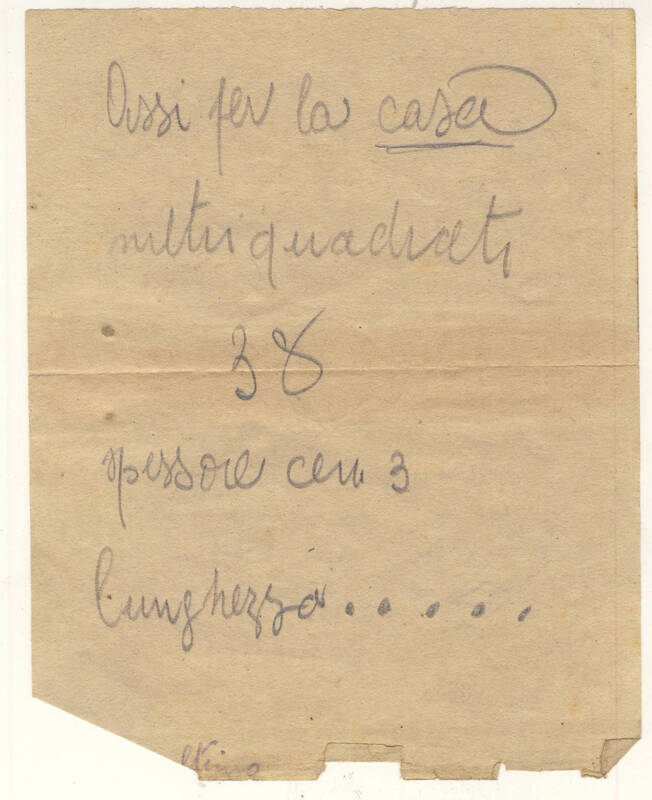 Assi per la casa
metri quadrati
38
spessore cm 3
lunghezza.....